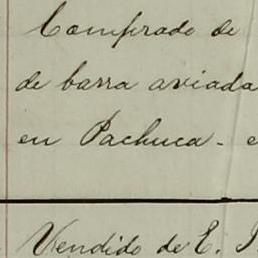 Comprado de
de barra aviada
en Pachuca - e
Vendido de E.